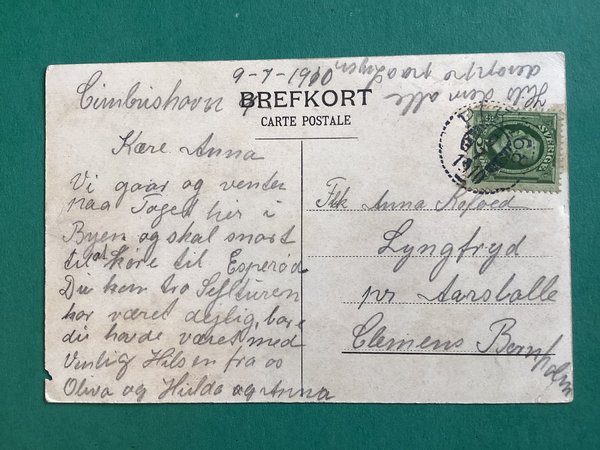 Hils dem alle
deroppe fra
9-7-1910
Cimbrishavn
BREFKORT
CARTE POSTALE
Kære Anna
Vi gaar og venter
paa Toget her i
Byen og skal snart
til at køre til Esperød
Du kan tro Sejlturen
har været dejlig, bare
du havde været med
Venlig Hilsen fra os
Oliva og Hulda og Anna
SVERIGE
Frk Anna Kofoed
Lyngfryd
pr Aarsballe
Clemens Bornholm